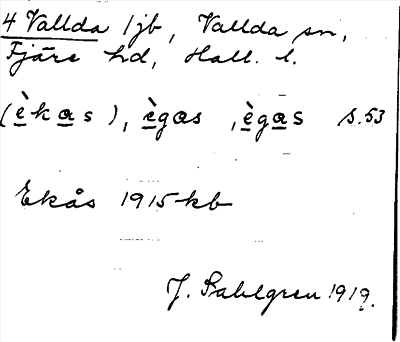 4 Vallda 1jb, Vallda sn,
Fjäre hd, Hall. l.
(èkas), ègas, ègas s.53
Ekås 1915 kb
J. Sahlgren 1919.